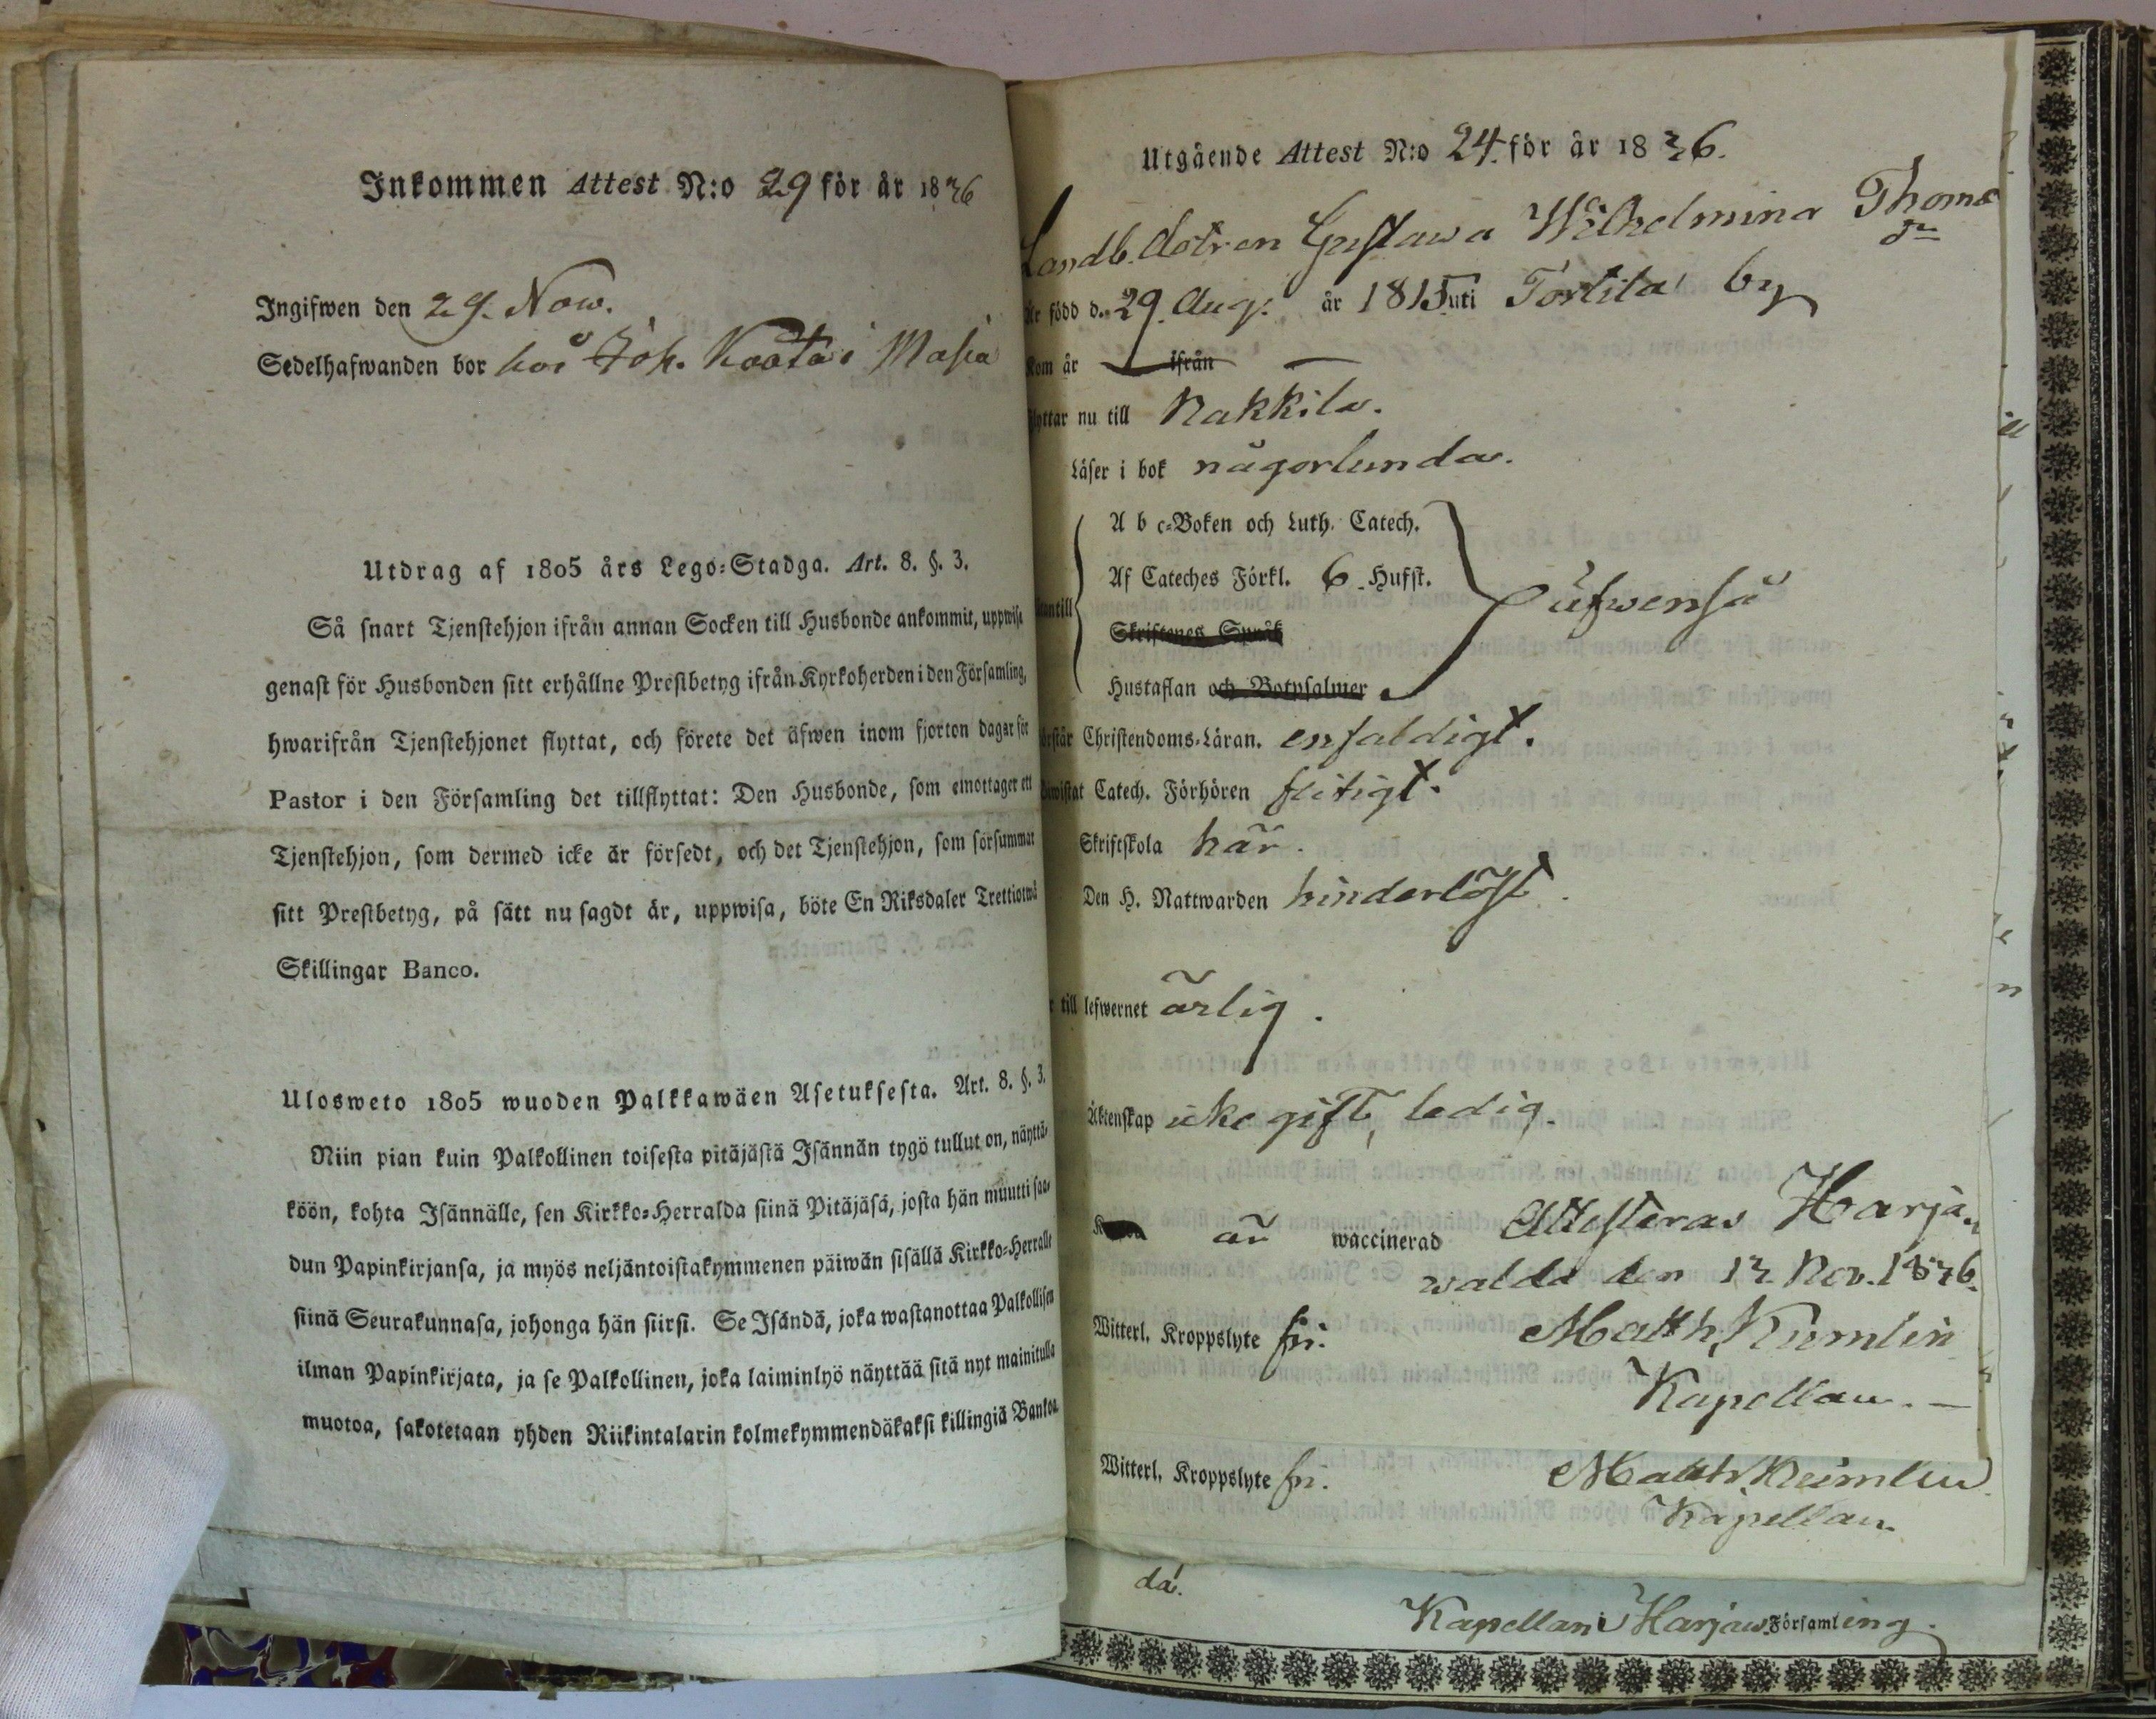 Inkommen Attest N:o 29 för år 1836
Ingifwen den 29. Now.
Sedelhafwanden bor hos Joh. Kaata i Masia
Utdrag af 1805 års Lego=Stadga. Art. 8. §. 3.
Så snart Tjenstehjon ifrån annan Socken till Husbonde ankommit, uppwise
genast för Husbonden sitt erhållne Prestbetyg ifrån Kyrkoherden i den Församling,
hwarifrån Tjenstehjonet flyttat, och förete det äfwen inom fjorton dagar för
Pastor i den Församling det tillflyttat: Den Husbonde, som emottager ett
Tjenstehjon, som dermed icke är försedt, och det Tjenstehjon, som försummar
sitt Prestbetyg, på sätt nu sagdt är, uppwisa, böte En Riksdaler Trettiotwå
Skillingar Banco.
Ulosweto 1805 wuoden Palkkawäen Asetuksesta. Art. 8. §. 3.
Niin pian kuin Palkollinen toisesta pitäjästä Isännän tygö tullut on, näyttä-
köön, kohta Isännälle, sen Kirkko=Herralda siinä Pitäjäsä, josta hän muutti saa-
dun Papinkirjansa, ja myös neljäntoistakymmenen päiwän sisällä Kirkko-Herralle
siinä Seurakunnasa, johonga hän siirsi. Se Isändä, joka wastanottaa Palkollisen
ilman Papinkirjata, ja se Palkollinen, joka laiminlyö näyttää sitä nyt mainitulla
muotoa, sakotetaan yhden Riikintalarin kolmekymmendäkaksi killingiä Bankoa
Utgående Attest N:o 24. för år 1836.
Landb. dotren Gustawa Wilhelmina Thoms
dr
Är född d. 29. Aug. år 1815 uti Torttila by
Kom år — ifrån —
flyttar nu till Nakkila.
Läser i bok någorlunda.
A b c=Boken och Luth. Catech.
Af Cateches Förkl. 6 Hufst.
Utantill
äfwenså
Skriftenes Språk
Hustaflan och Botpsalmer
Förstår Christendoms=Läran. enfaldigt.
Catech. Förhören flitigt.
Skriftskola här.
Den H. Nattwarden hinderlöst.
till lefwernet ärlig.
Äktenskap icke gift, ledig.
är waccinerad Attesteras Harja-
walda den 12 Nov. 1836.
Witterl. Kroppslyte fri. Matth. Kumlin
Kapellan. —
Witterl. Kroppslyte fri. Matth. Kumlin
Kapellan.
da.
Kapellan i Harjaw. Församling.